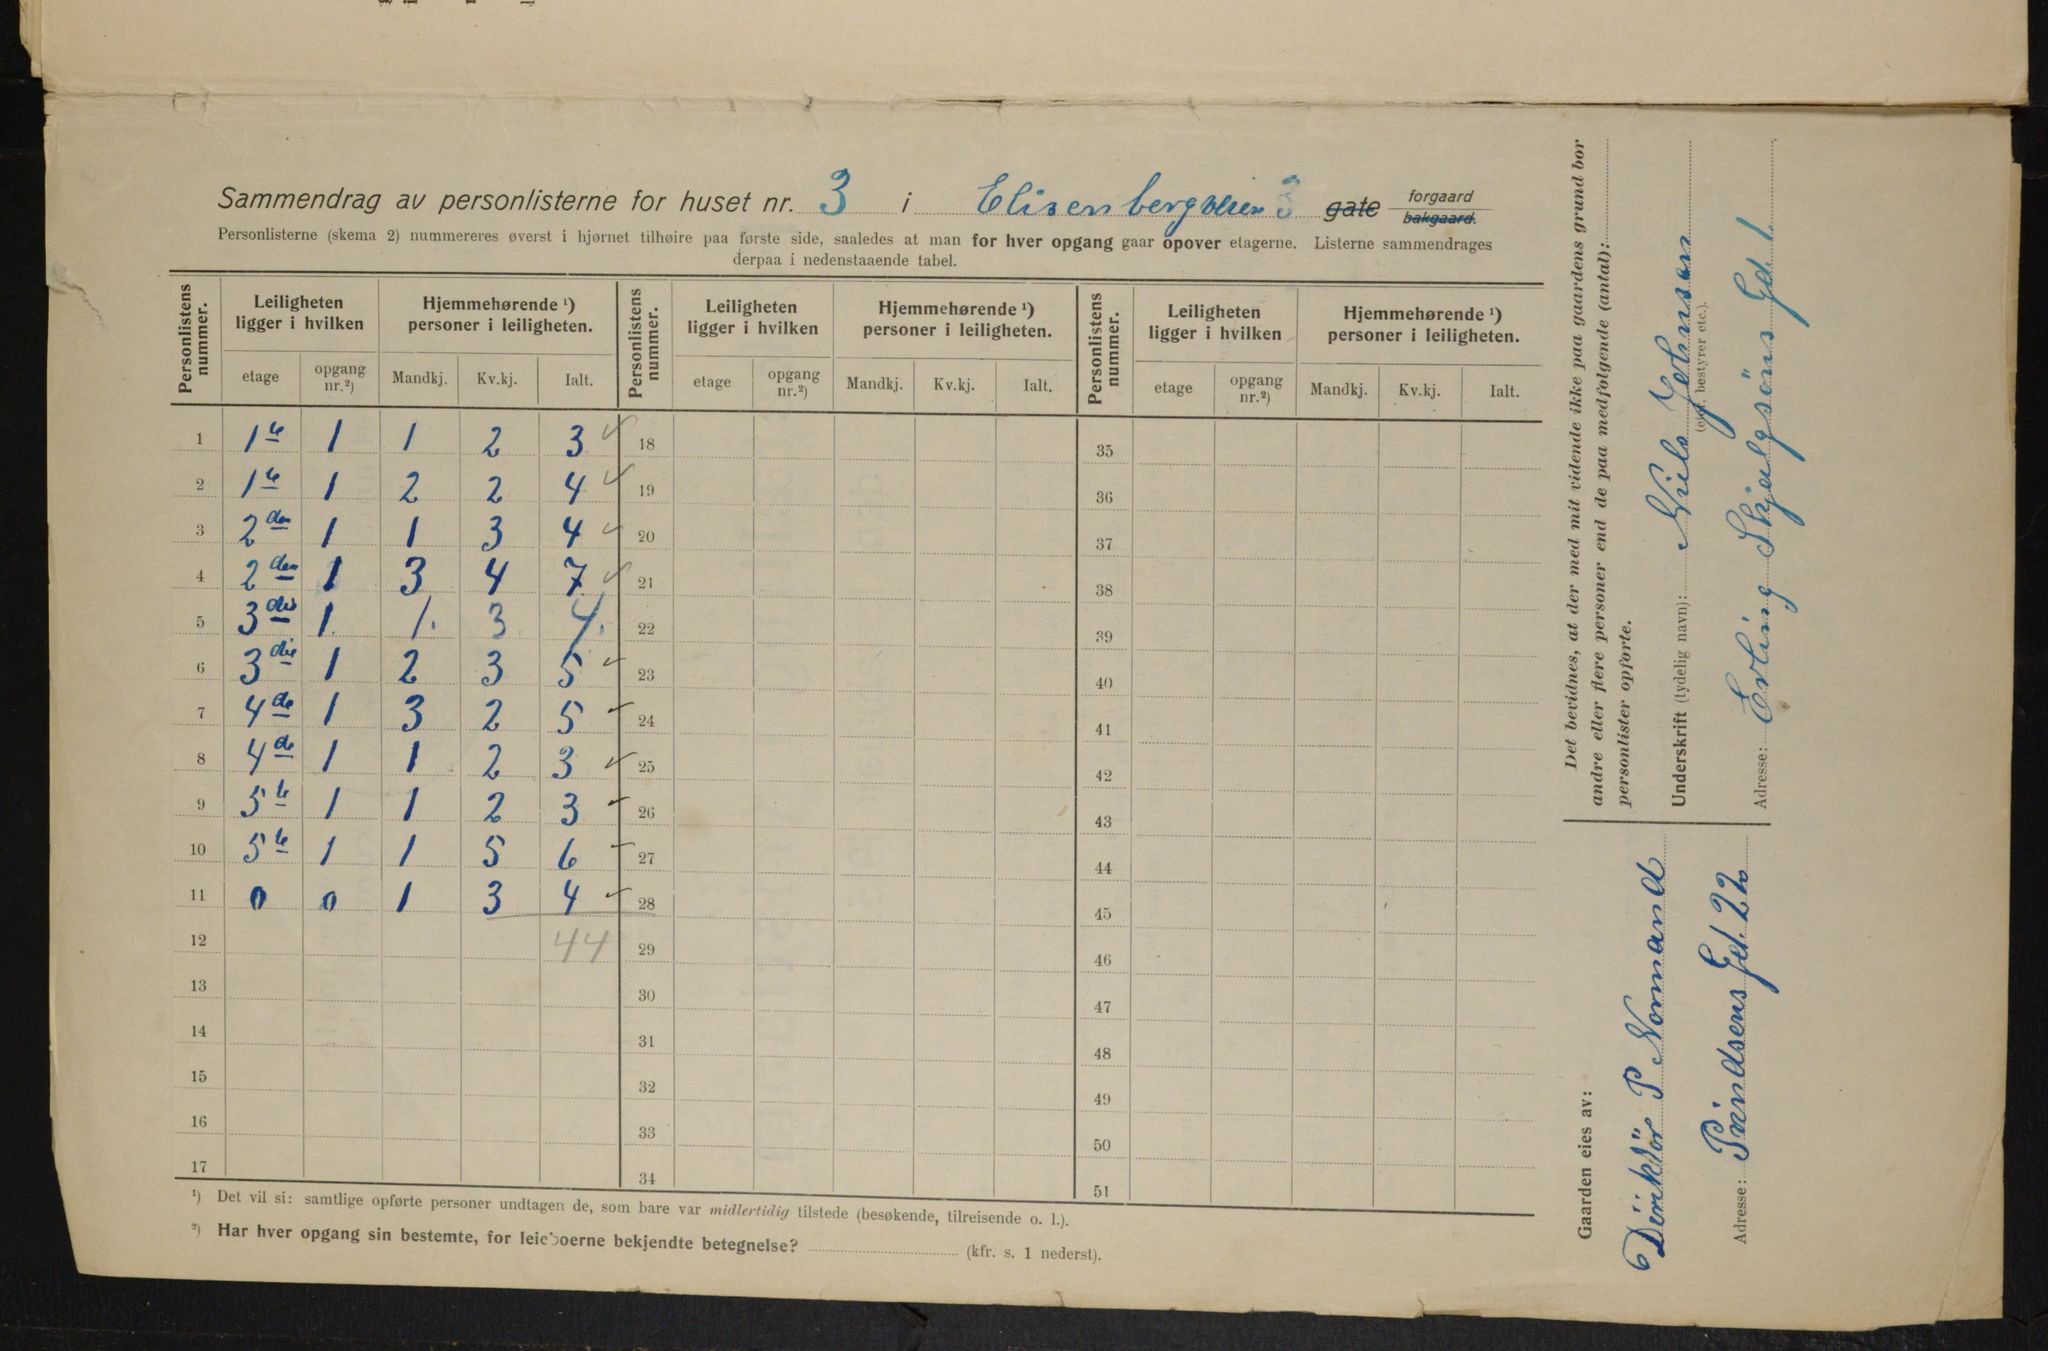 Sammendrag av personlisterne for huset nr. 3 i Elisenbergveien 3 gate forgaard bakgaard.
Personlisterne (skema 2) nummereres øverst i hjørnet tilhøire paa første side, saaledes at man for hver opgang gaar opover etagerne. Listerne sammendrages
derpaa i nedenstaaende tabel.
Personlistens nummer. Leiligheten ligger i hvilken Hjemmehørende ¹) personer i leiligheten. Personlistens nummer. Leiligheten ligger i hvilken Hjemmehørende ¹) personer i leiligheten. Personlistens nummer. Leiligheten ligger i hvilken Hjemmehørende ¹) personer i leiligheten.
etage opgang nr.²) Mandkj. Kv.kj. Ialt. etage opgang nr.²) Mandkj. Kv.kj. Ialt. etage opgang nr.²) Mandkj. Kv.kj. Ialt.
1 1te 1 1 2 3 18 35
2 1te 1 2 2 4 19 36
3 2den 1 1 3 4 20 37
4 2den 1 3 4 7 21 38
5 3die 1 1. 3 4. 22 39
6 3die 1 2 3 5 23 40
7 4de 1 3 2 5 24 41
8 4de 1 1 2 3 25 42
9 5te 1 1 2 3 26 43
10 5te 1 1 5 6 27 44
11 0 0 1 3 4 28 45
12 44 29 46
13 30 47
14 31 48
15 32 49
16 33 50
17 34 51
¹) Det vil si: samtlige opførte personer undtagen de, som bare var midlertidig tilstede (besøkende, tilreisende o. l.).
²) Har hver opgang sin bestemte, for leieboerne bekjendte betegnelse? (kfr. s. 1 nederst).
Det bevidnes, at der med mit vidende ikke paa gaardens grund bor
andre eller flere personer end de paa medfolgende (antal):
personlister opførte.
Underskrift (tydelig navn): Niels Johnsen
(eier, bestyrer etc.).
Adresse: Erling Skjalgsöns Gd 1.
Gaarden eies av:
Diriktör P Normand
Adresse: Pündsens Gd. 22